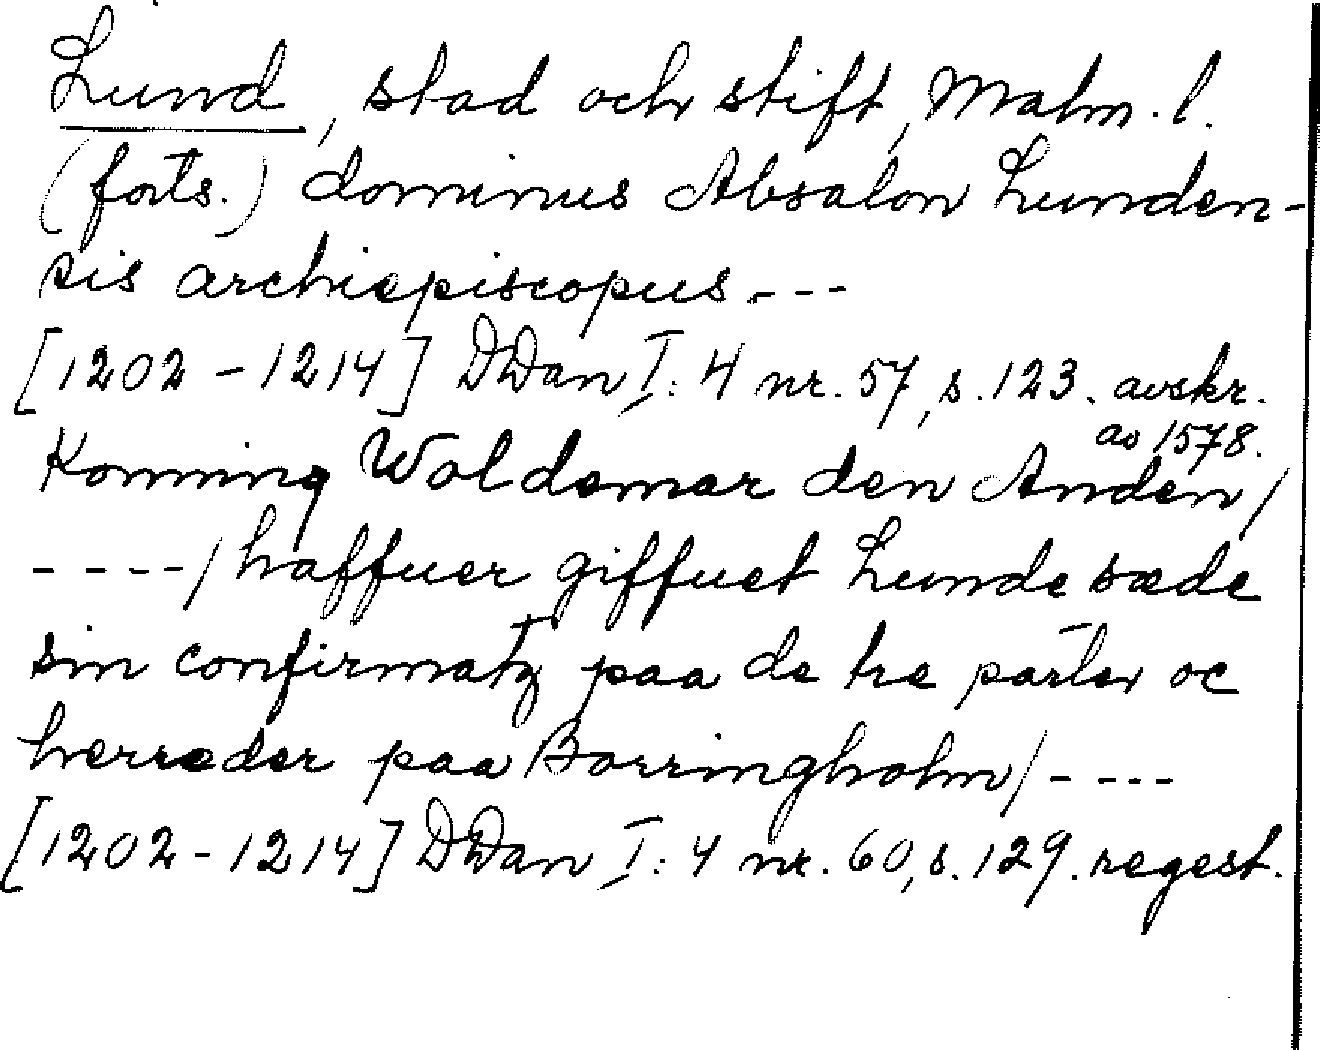 Lund, stad och stift, Malm. l.
(forts.) dominus Absalon Lunden-
sis archiepiscopus. ---
[1202-1214] DDan I: 4 nr. 57, s. 123. avskr.
av 1578.
Konning Woldemar den Anden/
----/ haffuer giffuet Lunde sæde
sin confirmatz paa de tre parter oc
herreder paa Borringholm/----
[1202-1214] DDan I: 4 nr. 60, s. 129. regest.